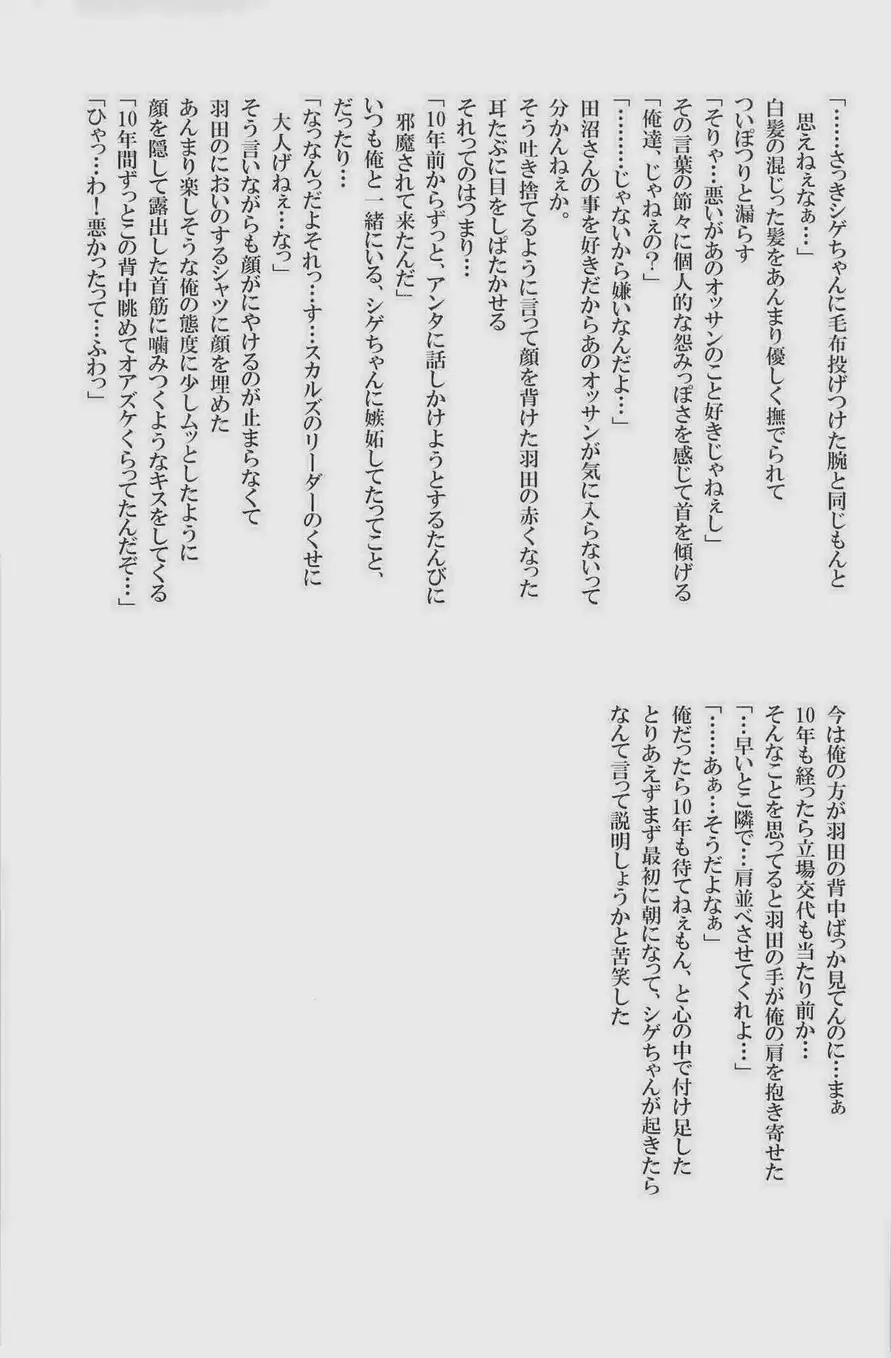 「……さっきシゲちゃんに毛布投げつけた腕と同じもんと
思えねぇなぁ…」
白髪の混じった髪をあんまり優しく撫でられて
ついぽつりと漏らす
「そりゃ…悪いがあのオッサンのこと好きじゃねぇし」
その言葉の節々に個人的な怨みっぽさを感じて首を傾げる
「俺達、じゃねぇの？」
「………じゃないから嫌いなんだよ…」
田沼さんの事を好きだからあのオッサンが気に入らないって
分かんねぇか。
そう吐き捨てるように言って顔を背けた羽田の赤くなった
耳たぶに目をしばたかせる
それってのはつまり…
「10年前からずっと、アンタに話しかけようとするたんびに
邪魔されて来たんだ」
いつも俺と一緒にいる、シゲちゃんに嫉妬してたってこと、
だったり…
「なっなんっだよそれっ…す…スカルズのリーダーのくせに
大人げねぇ…なっ」
そう言いながらも顔がにやけるのが止まらなくて
羽田のにおいのするシャツに顔を埋めた
あんまり楽しそうな俺の態度に少しムッとしたように
顔を隠して露出した首筋に噛みつくようなキスをしてくる
「10年間ずっとこの背中眺めてオアズケくらってたんだぞ…」
「ひゃっ…わ！悪かったって…ふわっ」
今は俺の方が羽田の背中ばっか見てんのに…まぁ
10年も経ったら立場交代も当たり前か…
そんなことを思ってると羽田の手が俺の肩を抱き寄せた
「…早いとこ隣で…肩並べさせてくれよ…」
「……あぁ…そうだよなぁ」
俺だったら10年も待てねぇもん、と心の中で付け足した
とりあえずまず最初に朝になって、シゲちゃんが起きたら
なんて言って説明しょうかと苦笑した